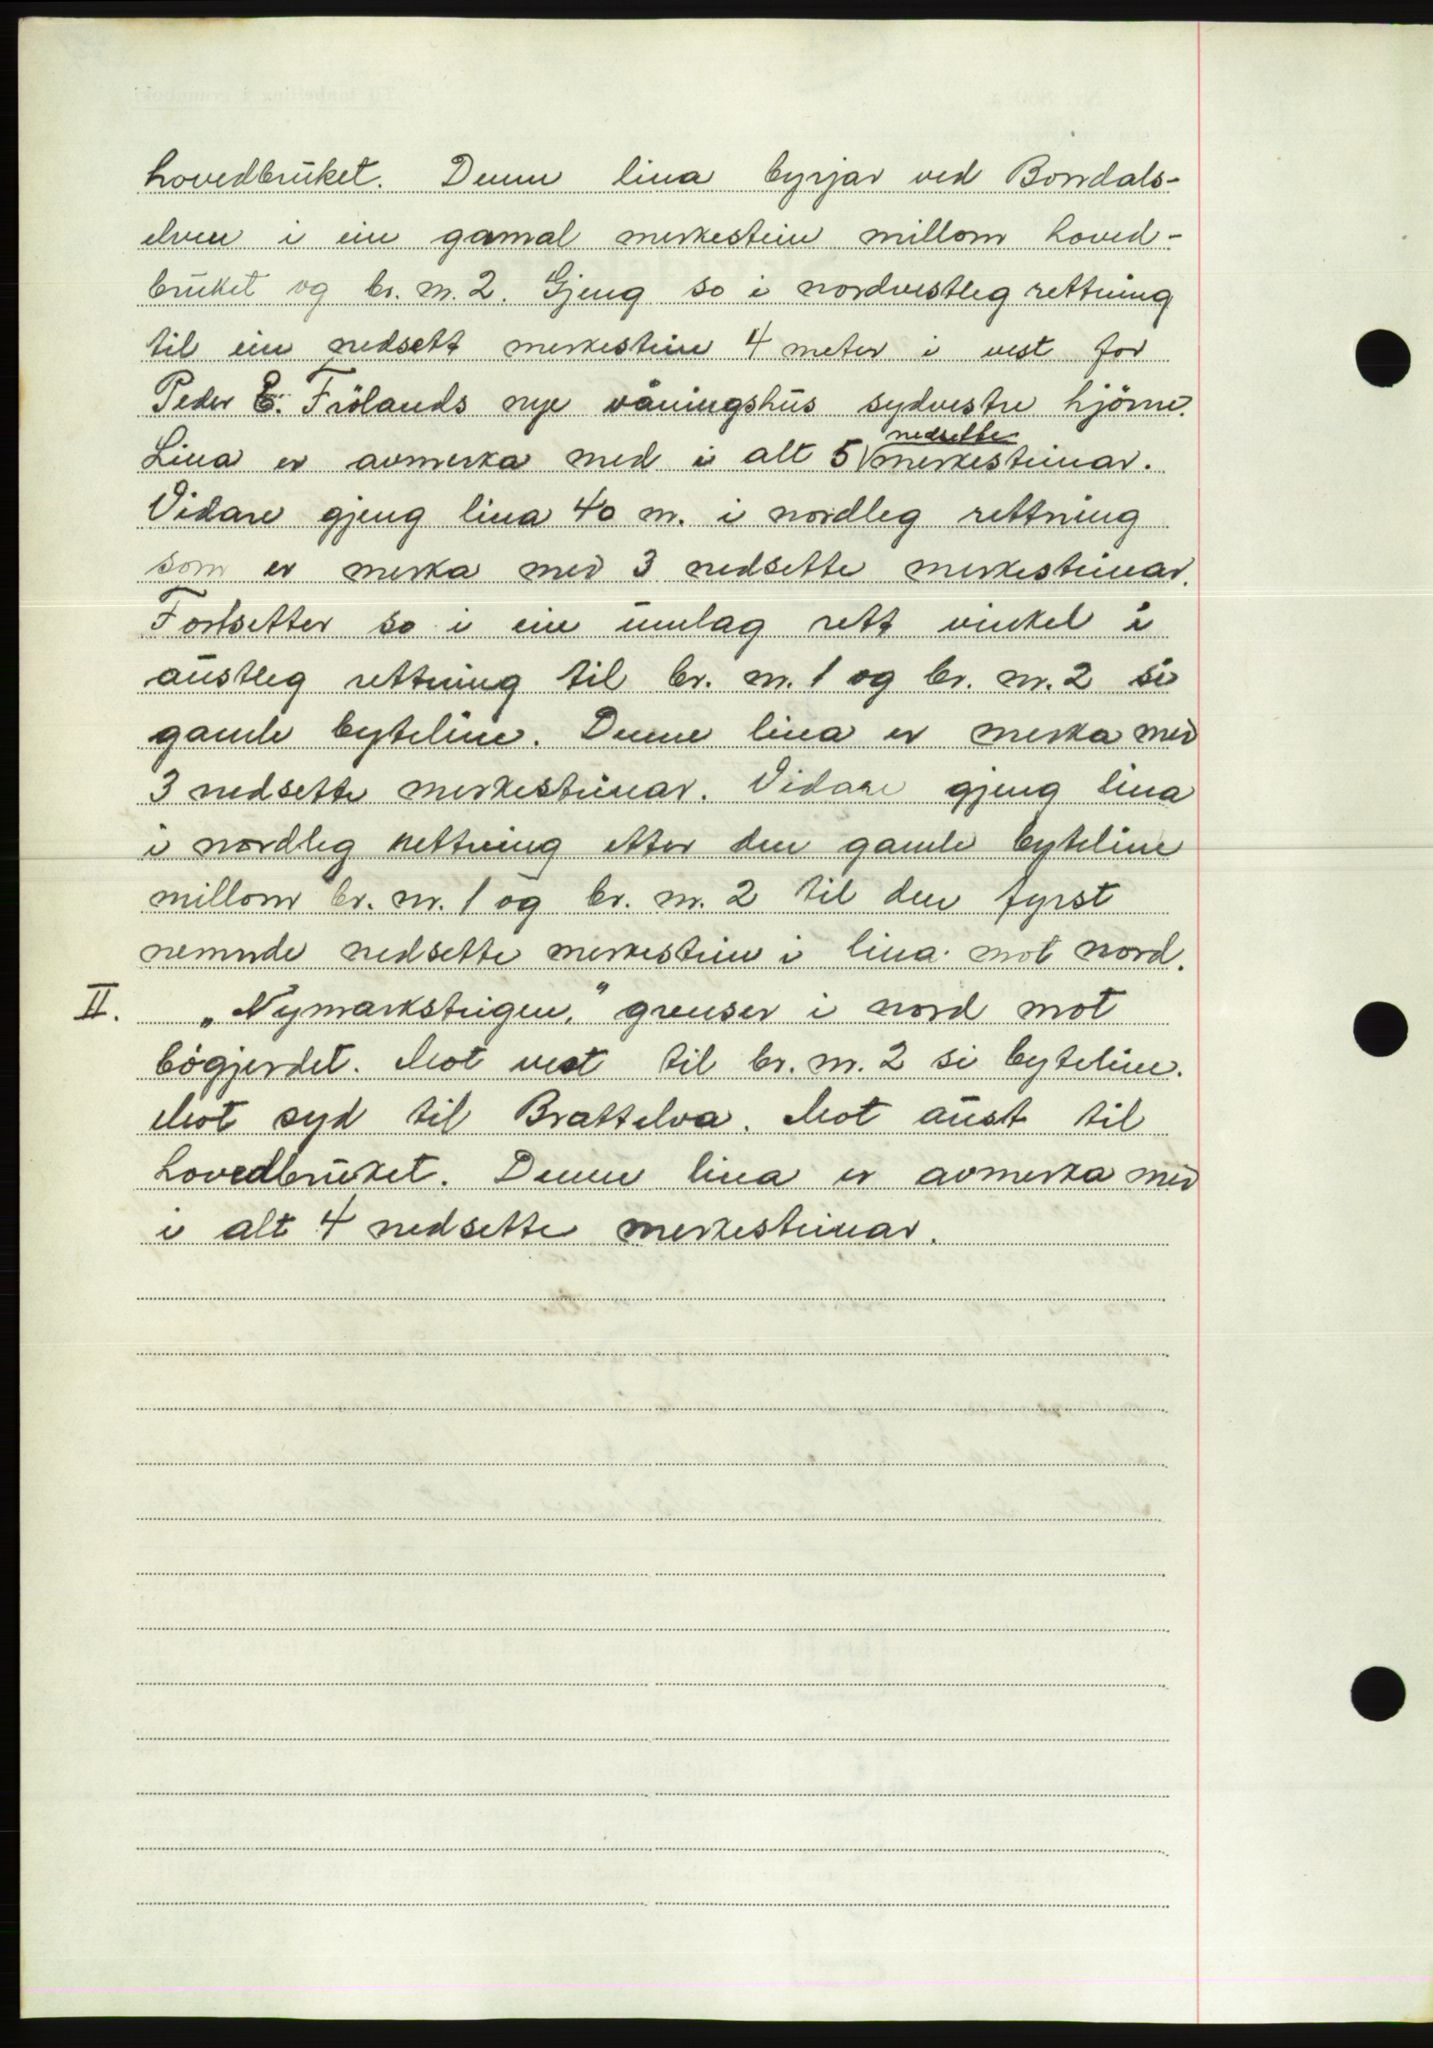 hovedbruket. Denne lina byrjar ved Bondals-
elven i ein gamal merkestein millom hoved-
bruket og br. nr. 2. Gjeng so i nordvestleg rettning
til ein nedsett merkestein 4 meter i vest for
Peder E. Frölands nye våningshus sydvestre hjörne.
Lina er avmerka med i alt 5 nedsette merkesteinar.
Vidare gjeng lina 40 m. i nordleg rettning
som er merka med 3 nedsette merkesteinar.
Fortsetter so i ein umlag rett vinkel i
austleg rettning til br. nr. 1 og br. nr. 2 si
gamle byteline. Denne lina er merka med
3 nedsette merkesteinar. Vidare gjeng lina
i nordleg rettning etter den gamle byteline
millom br. nr. 1 og br. nr. 2 til den fyrst
nemnde nedsette merkestein i lina mot nord.
II. „Nymarksteigen," grenser i nord mot
bögjerdet. Mot vest til br. nr. 2 si byteline.
Mot syd til Brattelva. Mot aust til
hovedbruket. Denne lina er avmerka med
i alt 4 nedsette merkesteinar.